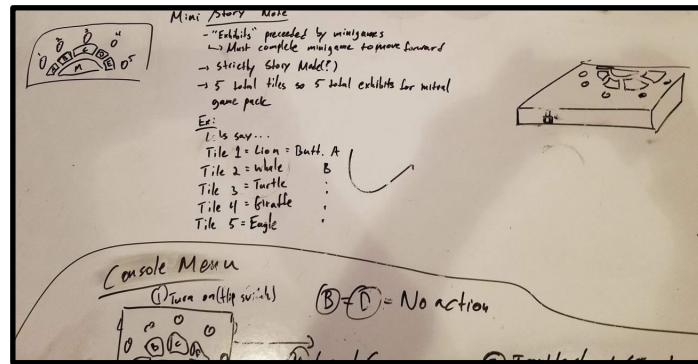 Mini Story Mode
- "Exhibits" preceded by minigames
↳ Must complete minigame to move forward
→ Strictly Story Mode(?)
→ 5 total tiles so 5 total exhibits for initial
game pack
Ex:
Let's say...
Tile 1 = Lion = Butt. A
Tile 2 = Whale B
Tile 3 = Turtle
Tile 4 = Giraffe
Tile 5 = Eagle
1 2 3 4 5
A B C D E
M
Console Menu
① Turn on (flip switch)
B = D = No action
B C D